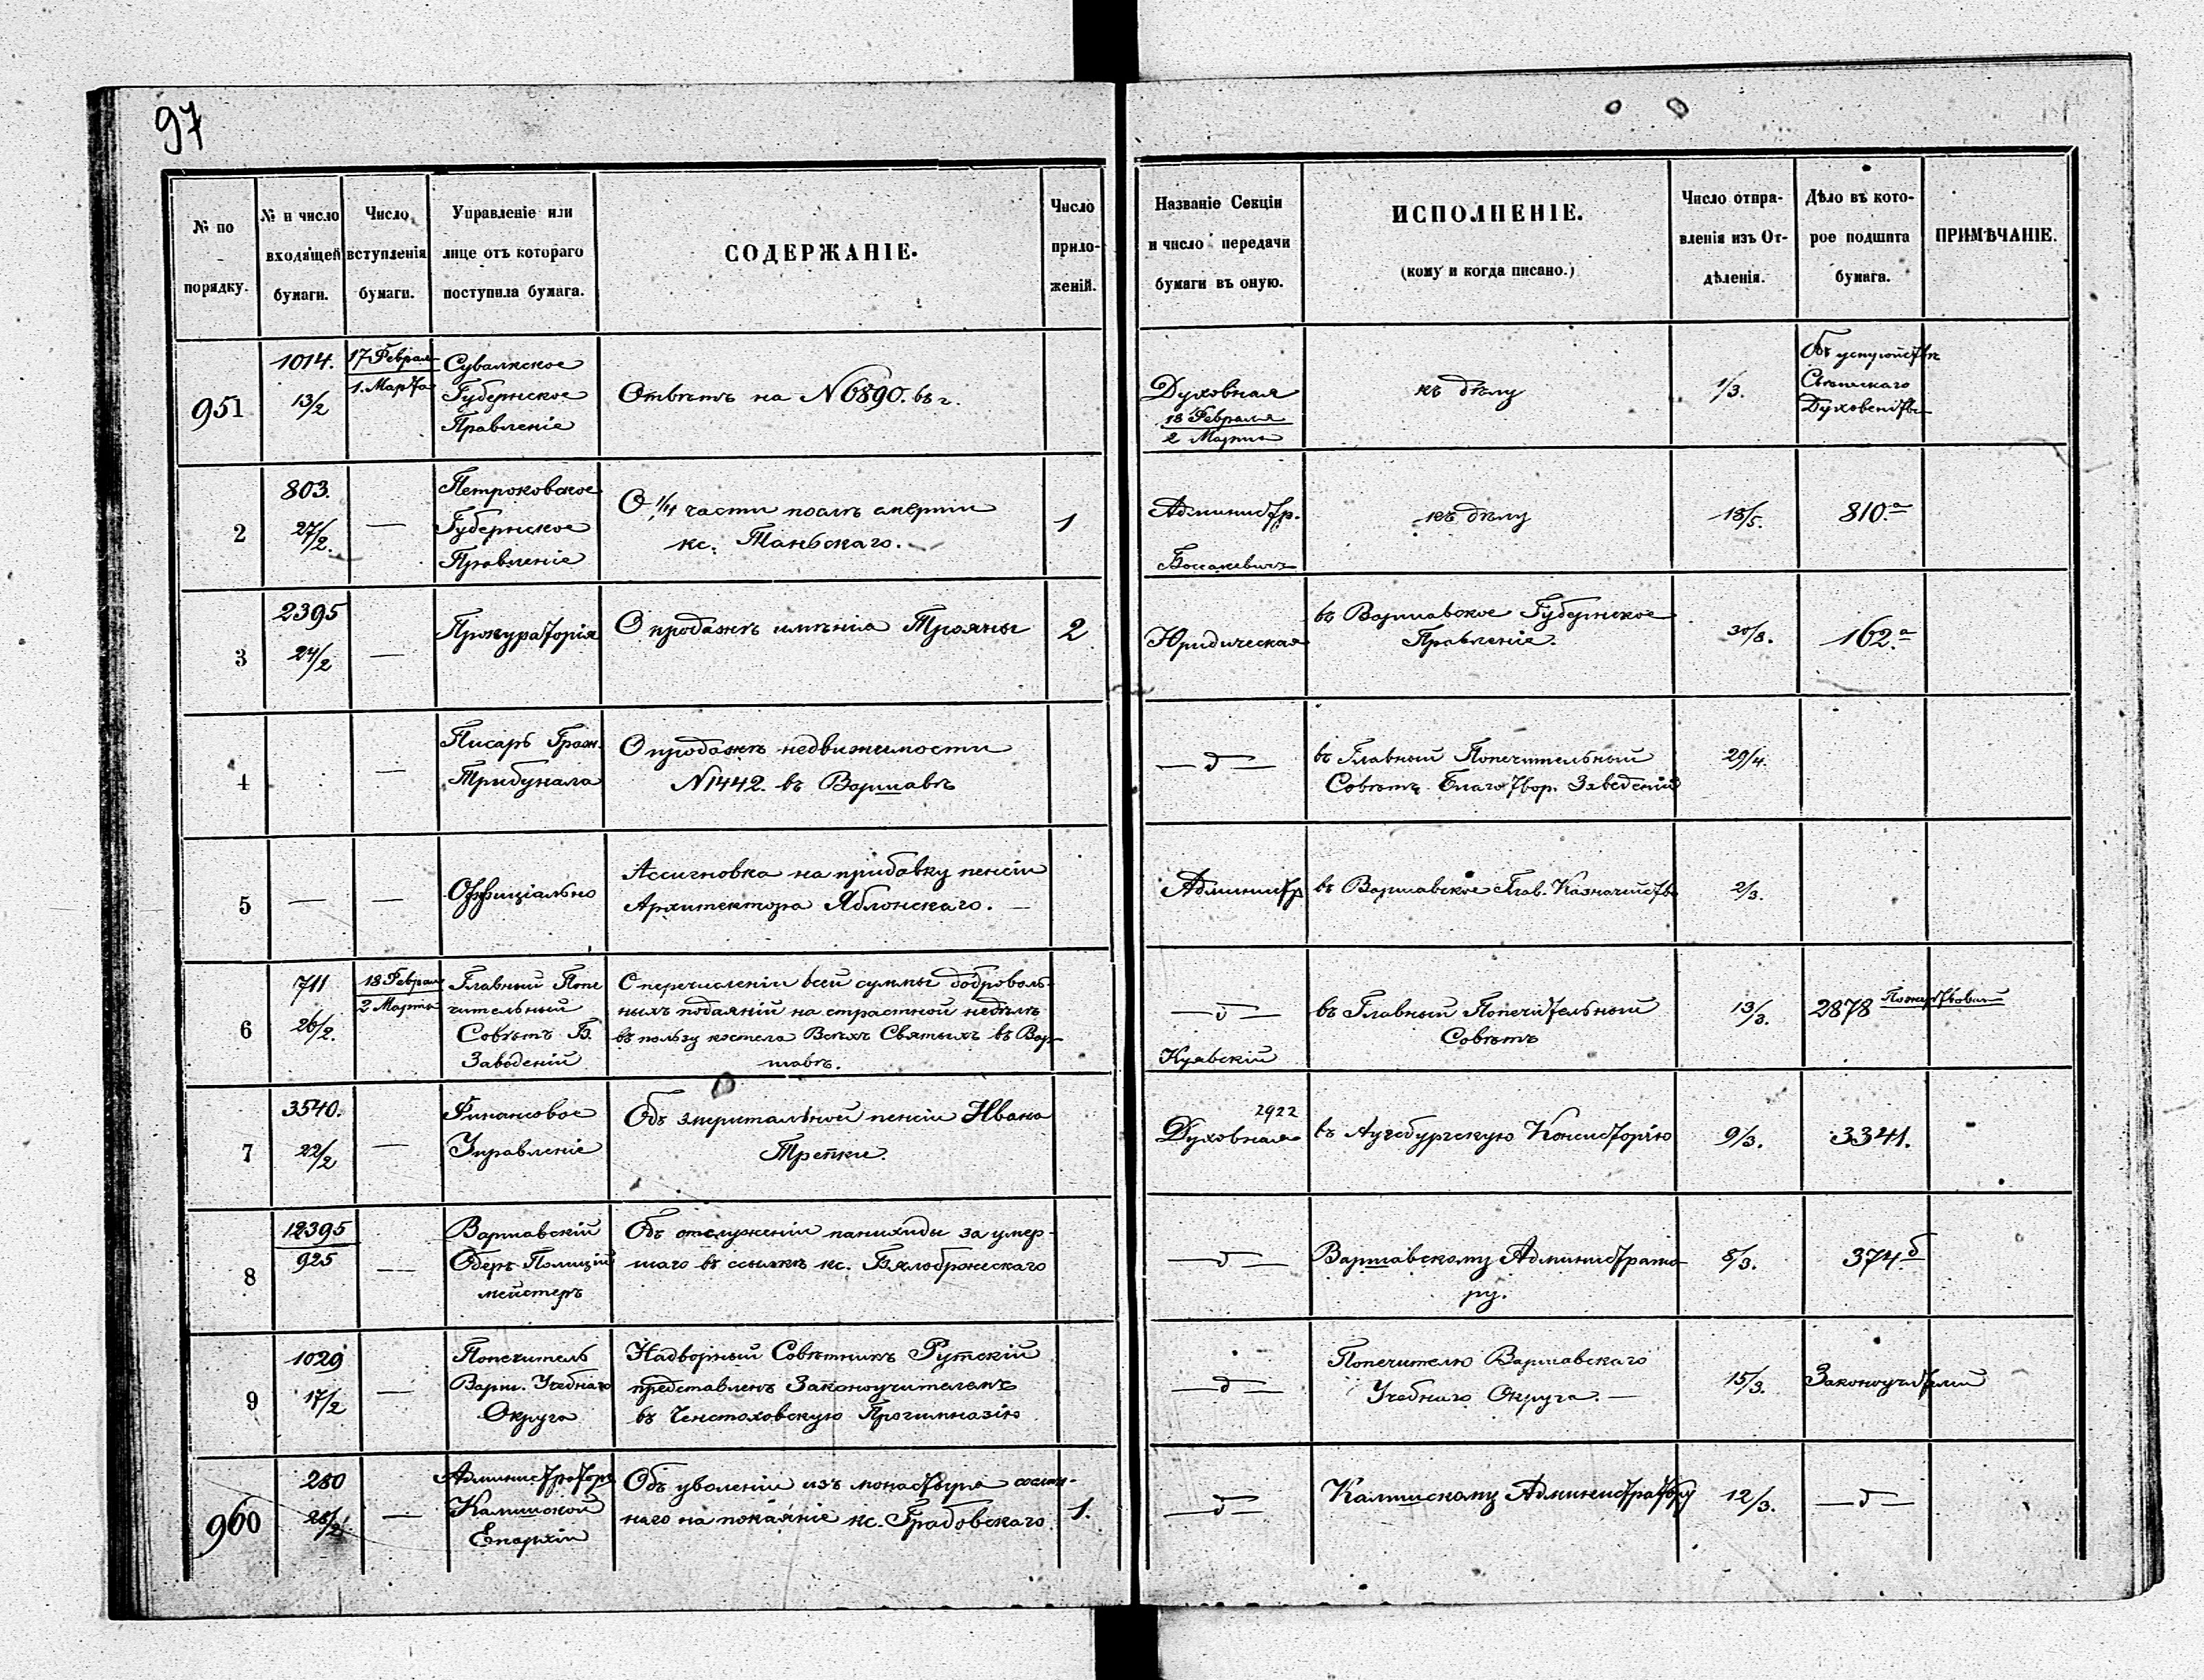 97
№ по порядку.
№ и число входящей бумаги.
Число вступленія бумаги.
Управленіе или лице отъ котораго поступила бумага.
СОДЕРЖАНІЕ.
Число приложеній.
Названіе Секціи и число передачи бумаги въ оную.
ИСПОЛНЕНІЕ.
(кому и когда писано.)
Число отправленія изъ Отдѣленія.
Дѣло въ которое подшита бумага.
ПРИМѢЧАНІЕ.
951
1014.
13/2
17 Феврал
1. Марта
Сувалкское
Губернское
Правленіе
Отвѣтъ на N 6890. въ г.
Духовная
18 Февраля
2 Марта
къ дѣлу
1/3.
Духовенства
2
803.
27/2.
—
Петроковское
Губернское
Правленіе
О 1/4 части послѣ смерти
кс. Таньскаго.
1
Администр.
къ дѣлу
18/5.
810.а
3
2395
24/2
—
Прокураторія
О продажѣ имѣнія Трояны
2
Юридическая
въ Варшавское Губернское
Правленіе.
30/8.
162.а
4
—
Писарь Граж.
Трибунала
О продажѣ недвижимости
N 1442. въ Варшавѣ
— д —
въ Главный Попечительный
Совѣтъ Благотвор. Заведеній
29/4.
5
—
—
Оффиціально
Ассигновка на прибавку пенсіи
Архитектора Яблонскаго. —
Администр
въ Варшавское Глав. Казначейство
2/3.
6
711
26/2.
18 Феврал
2 Марта
Главный Попе
чительный
Совѣтъ Б.
Заведеній
О перечисленіи всей суммы доброволь-
ныхъ подаяній на страстной недѣлѣ
въ пользу костела Всѣхъ Святыхъ въ Вар-
шавѣ.
— д —
Куявскій
въ Главный Попечительный
Совѣтъ
13/3.
2878
7
3540.
22/2
—
Финансовое
Управленіе
Объ эмеритальной пенсіи Ивана
Трепки.
2922
Духовная
въ Аугсбургскую Консисторію
9/3.
3341.
8
12395
925
—
Варшавскій
Оберъ Полицій
мейстеръ
Объ отслуженіи панихиды за умер-
шаго въ ссылкѣ кс. Бялобржескаго
— д —
Варшавскому Администрато-
ру.
8/3.
374.б
9
1029
17/2
—
Попечитель
Варш. Учебнаго
Округа
Надворный Совѣтникъ Рутскій
представленъ Законоучителемъ
въ Ченстоховскую Прогимназію
— д —
Попечителю Варшавскаго
Учебнаго Округа. —
15/3.
Законоучителей
960
280
28/2
—
Администраторъ
Калишской
Епархіи
Объ уволеніи изъ монастыря сослан-
наго на покаяніе кс. Градовскаго
1.
— д —
Калишскому Администратору
12/3.
— д —